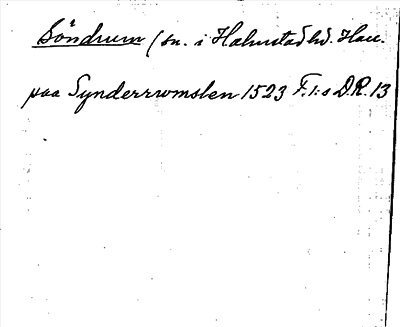 Söndrum (sn. i Halmstad hd. Hall.
paa Synderrvmslen 1523 F.1:s D.R. 13